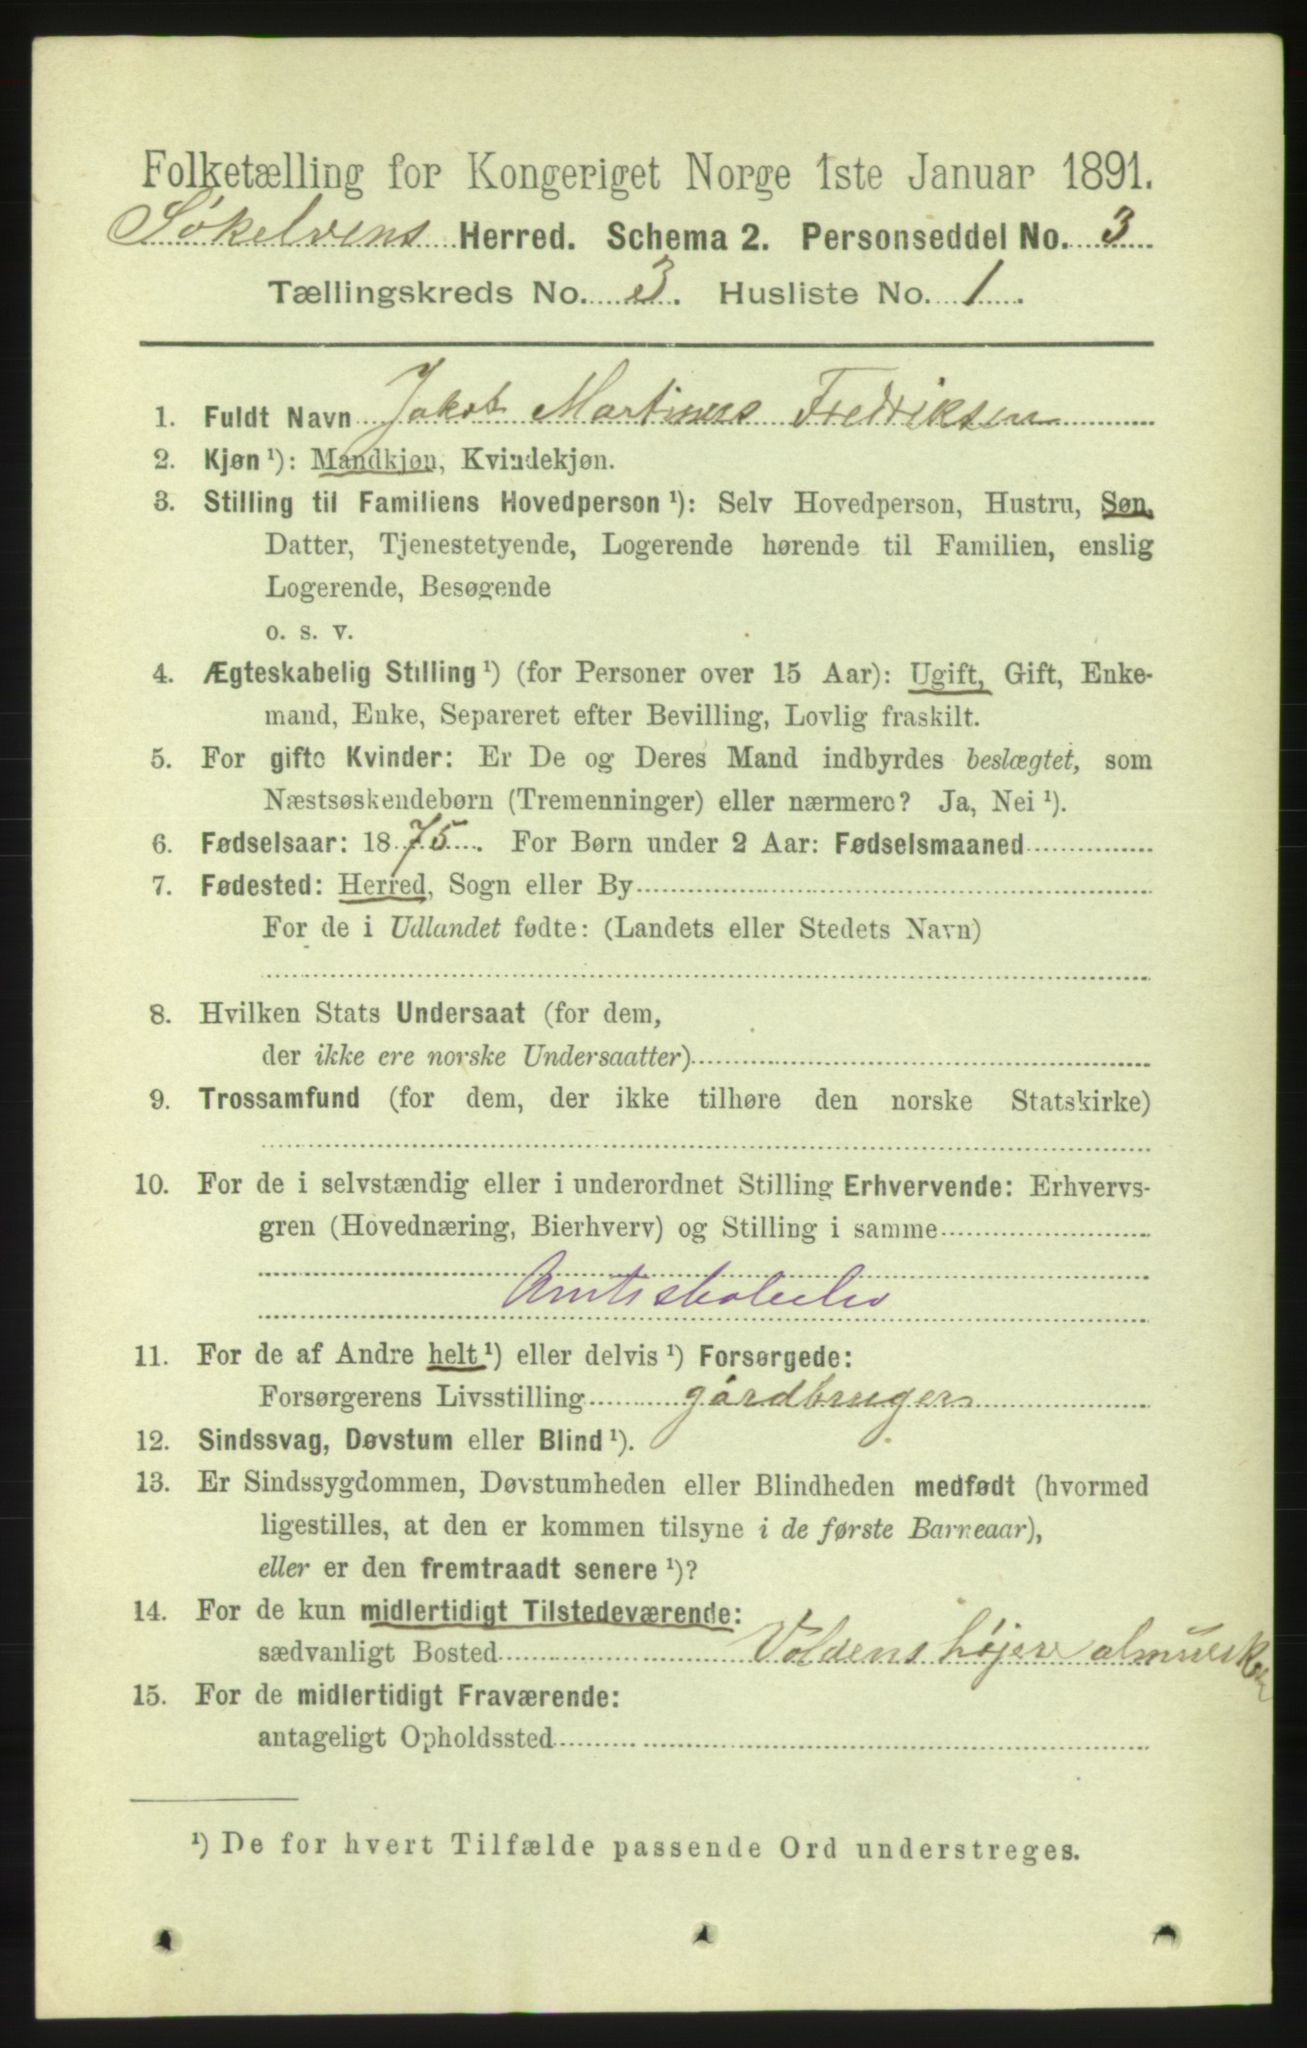 Folketælling for Kongeriget Norge 1ste Januar 1891.
Søkelvens Herred. Schema 2. Personseddel No. 3
Tællingskreds No. 3. Husliste No. 1.
1. Fuldt Navn Jakob Martinus Fredriksen
2. Kjøn ¹): Mandkjøn, Kvindekjøn.
3. Stilling til Familiens Hovedperson ¹): Selv Hovedperson, Hustru, Søn,
Datter, Tjenestetyende, Logerende hørende til Familien, enslig
Logerende, Besøgende
o. s. v.
4. Ægteskabelig Stilling ¹) (for Personer over 15 Aar): Ugift, Gift, Enke-
mand, Enke, Separeret efter Bevilling, Lovlig fraskilt.
5. For gifte Kvinder: Er De og Deres Mand indbyrdes beslægtet, som
Næstsøskendebørn (Tremenninger) eller nærmere? Ja, Nei ¹).
6. Fødselsaar: 1875. For Børn under 2 Aar: Fødselsmaaned
7. Fødested: Herred, Sogn eller By
For de i Udlandet fødte: (Landets eller Stedets Navn)
8. Hvilken Stats Undersaat (for dem,
der ikke ere norske Undersaatter)
9. Trossamfund (for dem, der ikke tilhøre den norske Statskirke)
10. For de i selvstændig eller i underordnet Stilling Erhvervende: Erhvervs-
gren (Hovednæring, Bierhverv) og Stilling i samme
Amtsskoleelev
11. For de af Andre helt ¹) eller delvis ¹) Forsørgede:
Forsørgerens Livsstilling gårdbruger
12. Sindssvag, Døvstum eller Blind ¹).
13. Er Sindssygdommen, Døvstumheden eller Blindheden medfødt (hvormed
ligestilles, at den er kommen tilsyne i de første Barneaar),
eller er den fremtraadt senere ¹)?
14. For de kun midlertidigt Tilstedeværende:
sædvanligt Bosted Voldens højere
15. For de midlertidigt Fraværende:
antageligt Opholdssted
¹) De for hvert Tilfælde passende Ord understreges.